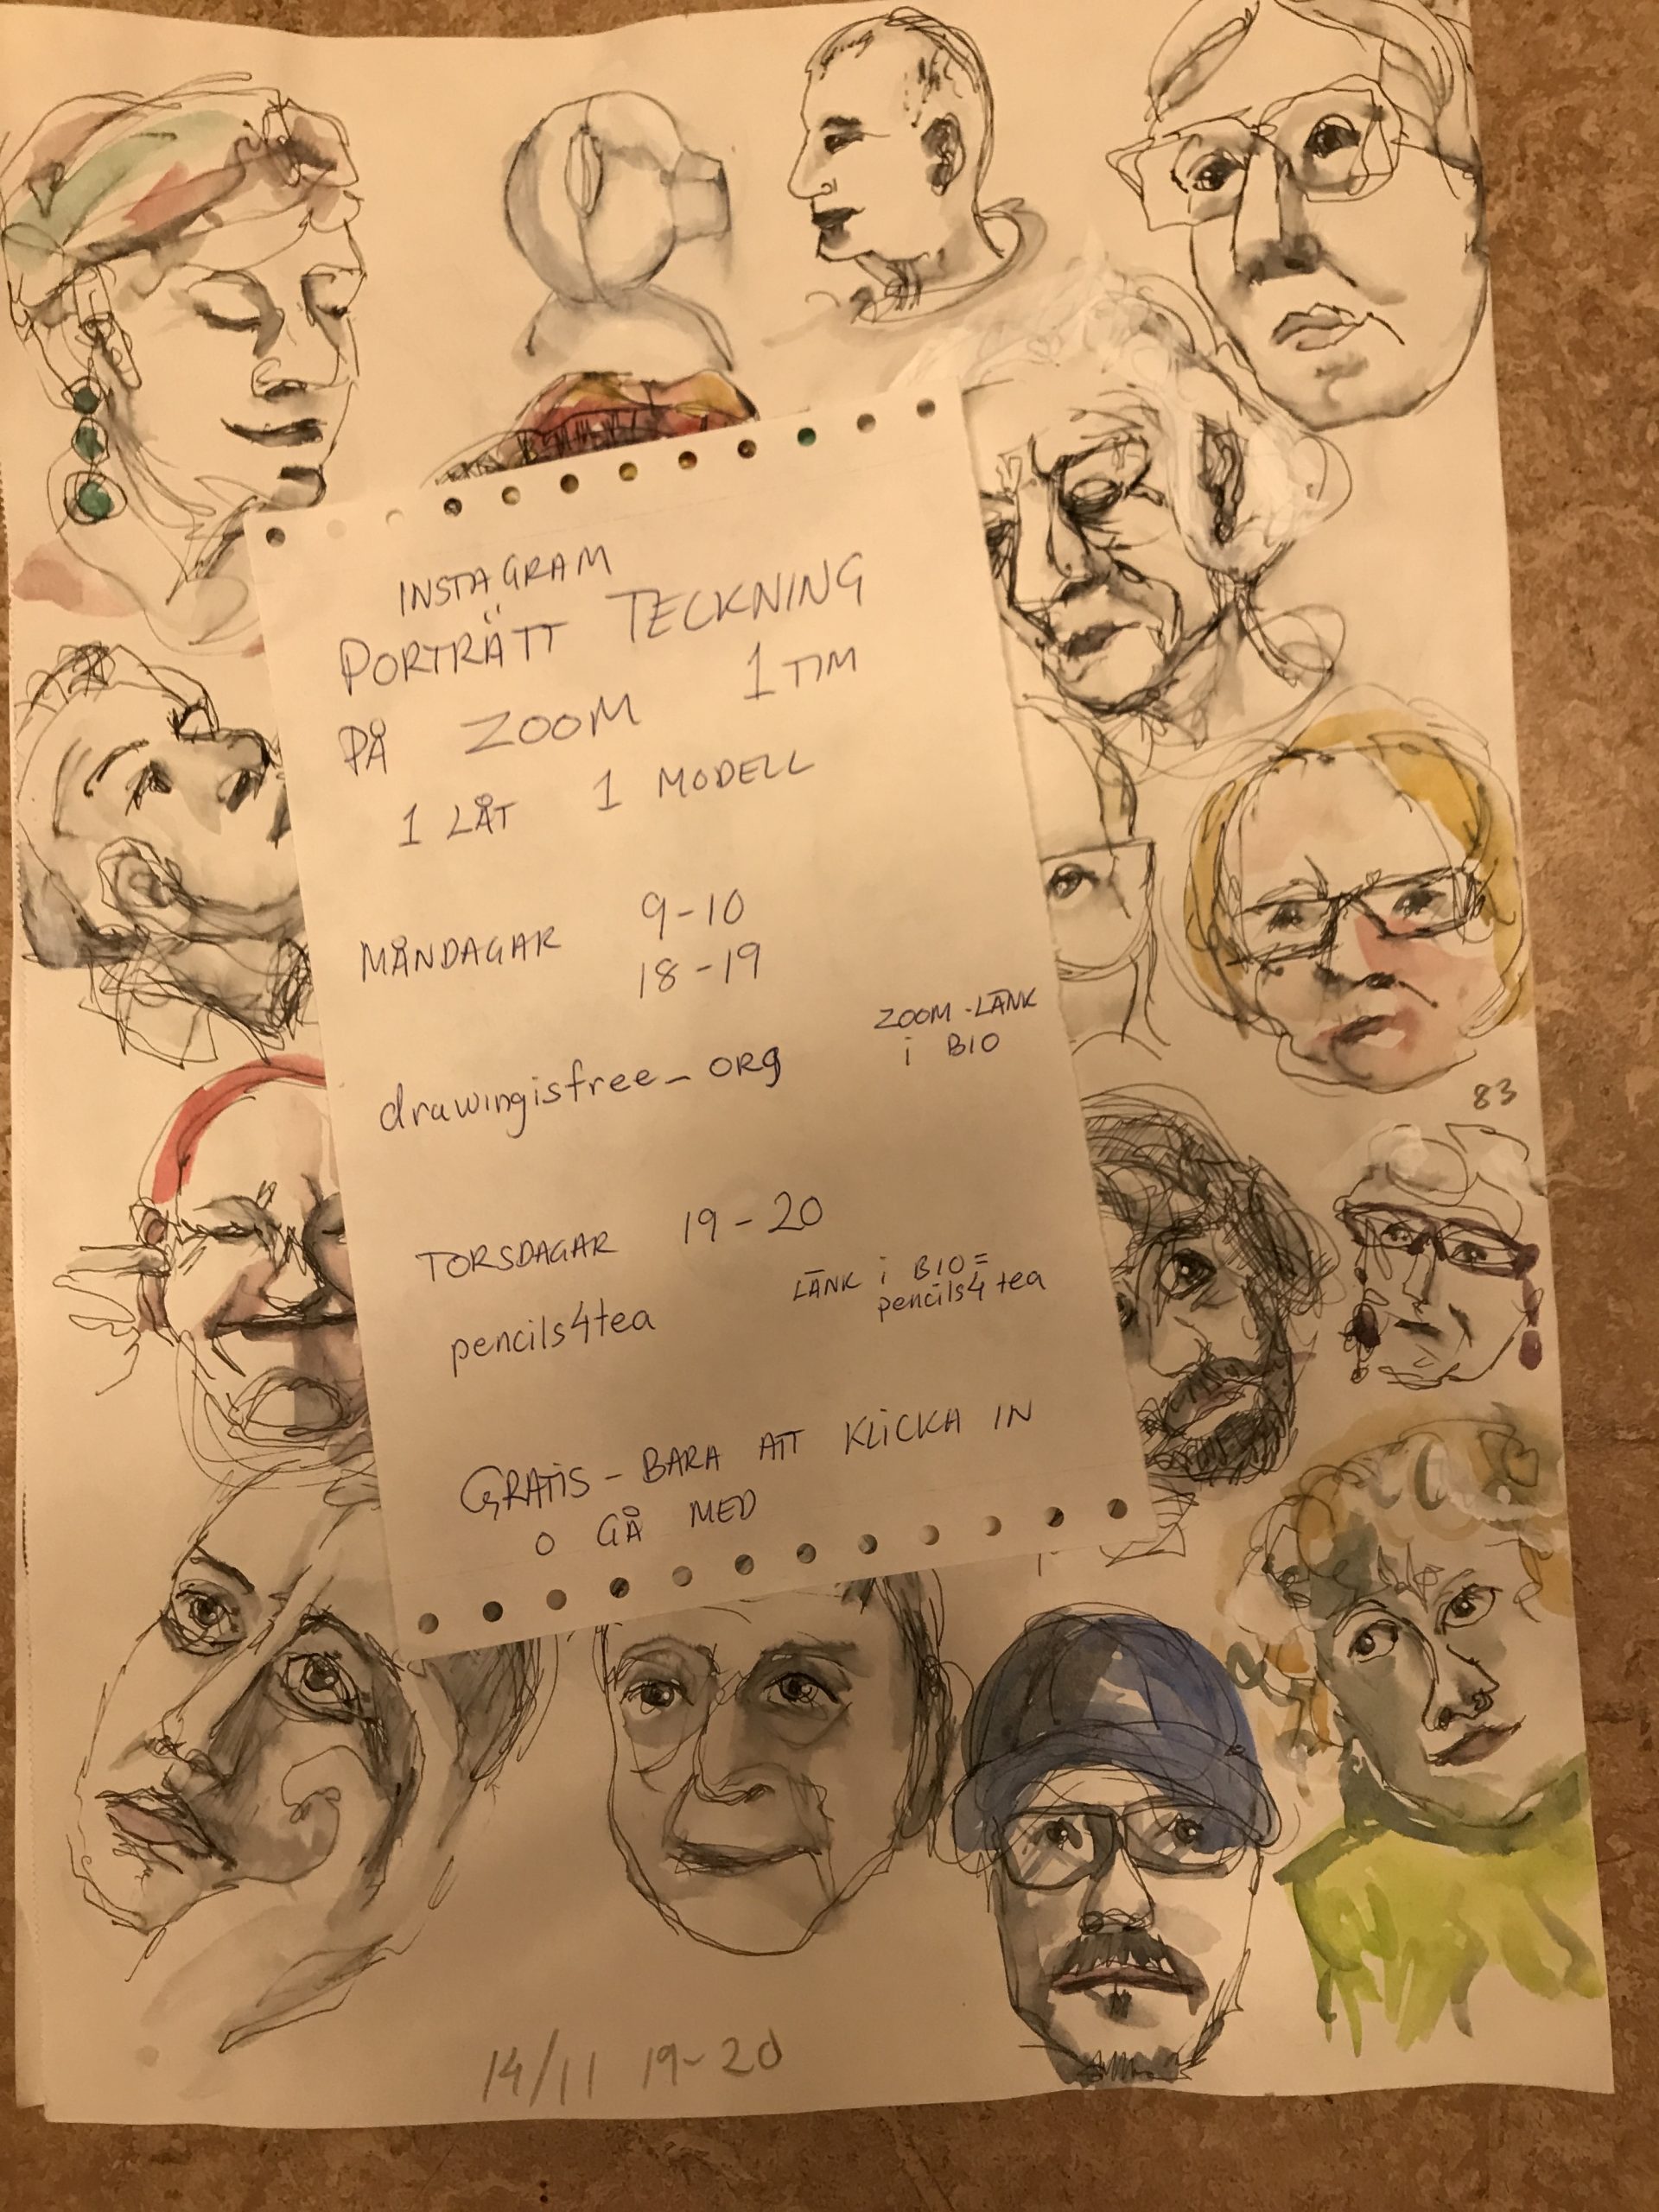 INSTAGRAM
PORTRÄTT TECKNING
PÅ ZOOM 1 TIM
1 LÅT 1 MODELL
MÅNDAGAR 9-10
18-19
ZOOM-LÄNK
i BIO
drawingisfree_org
TORSDAGAR 19-20
LÄNK i BIO=
pencils4tea
pencils4tea
GRATIS - BARA ATT KLICKA IN
O GÅ MED
83
14/11 19-20